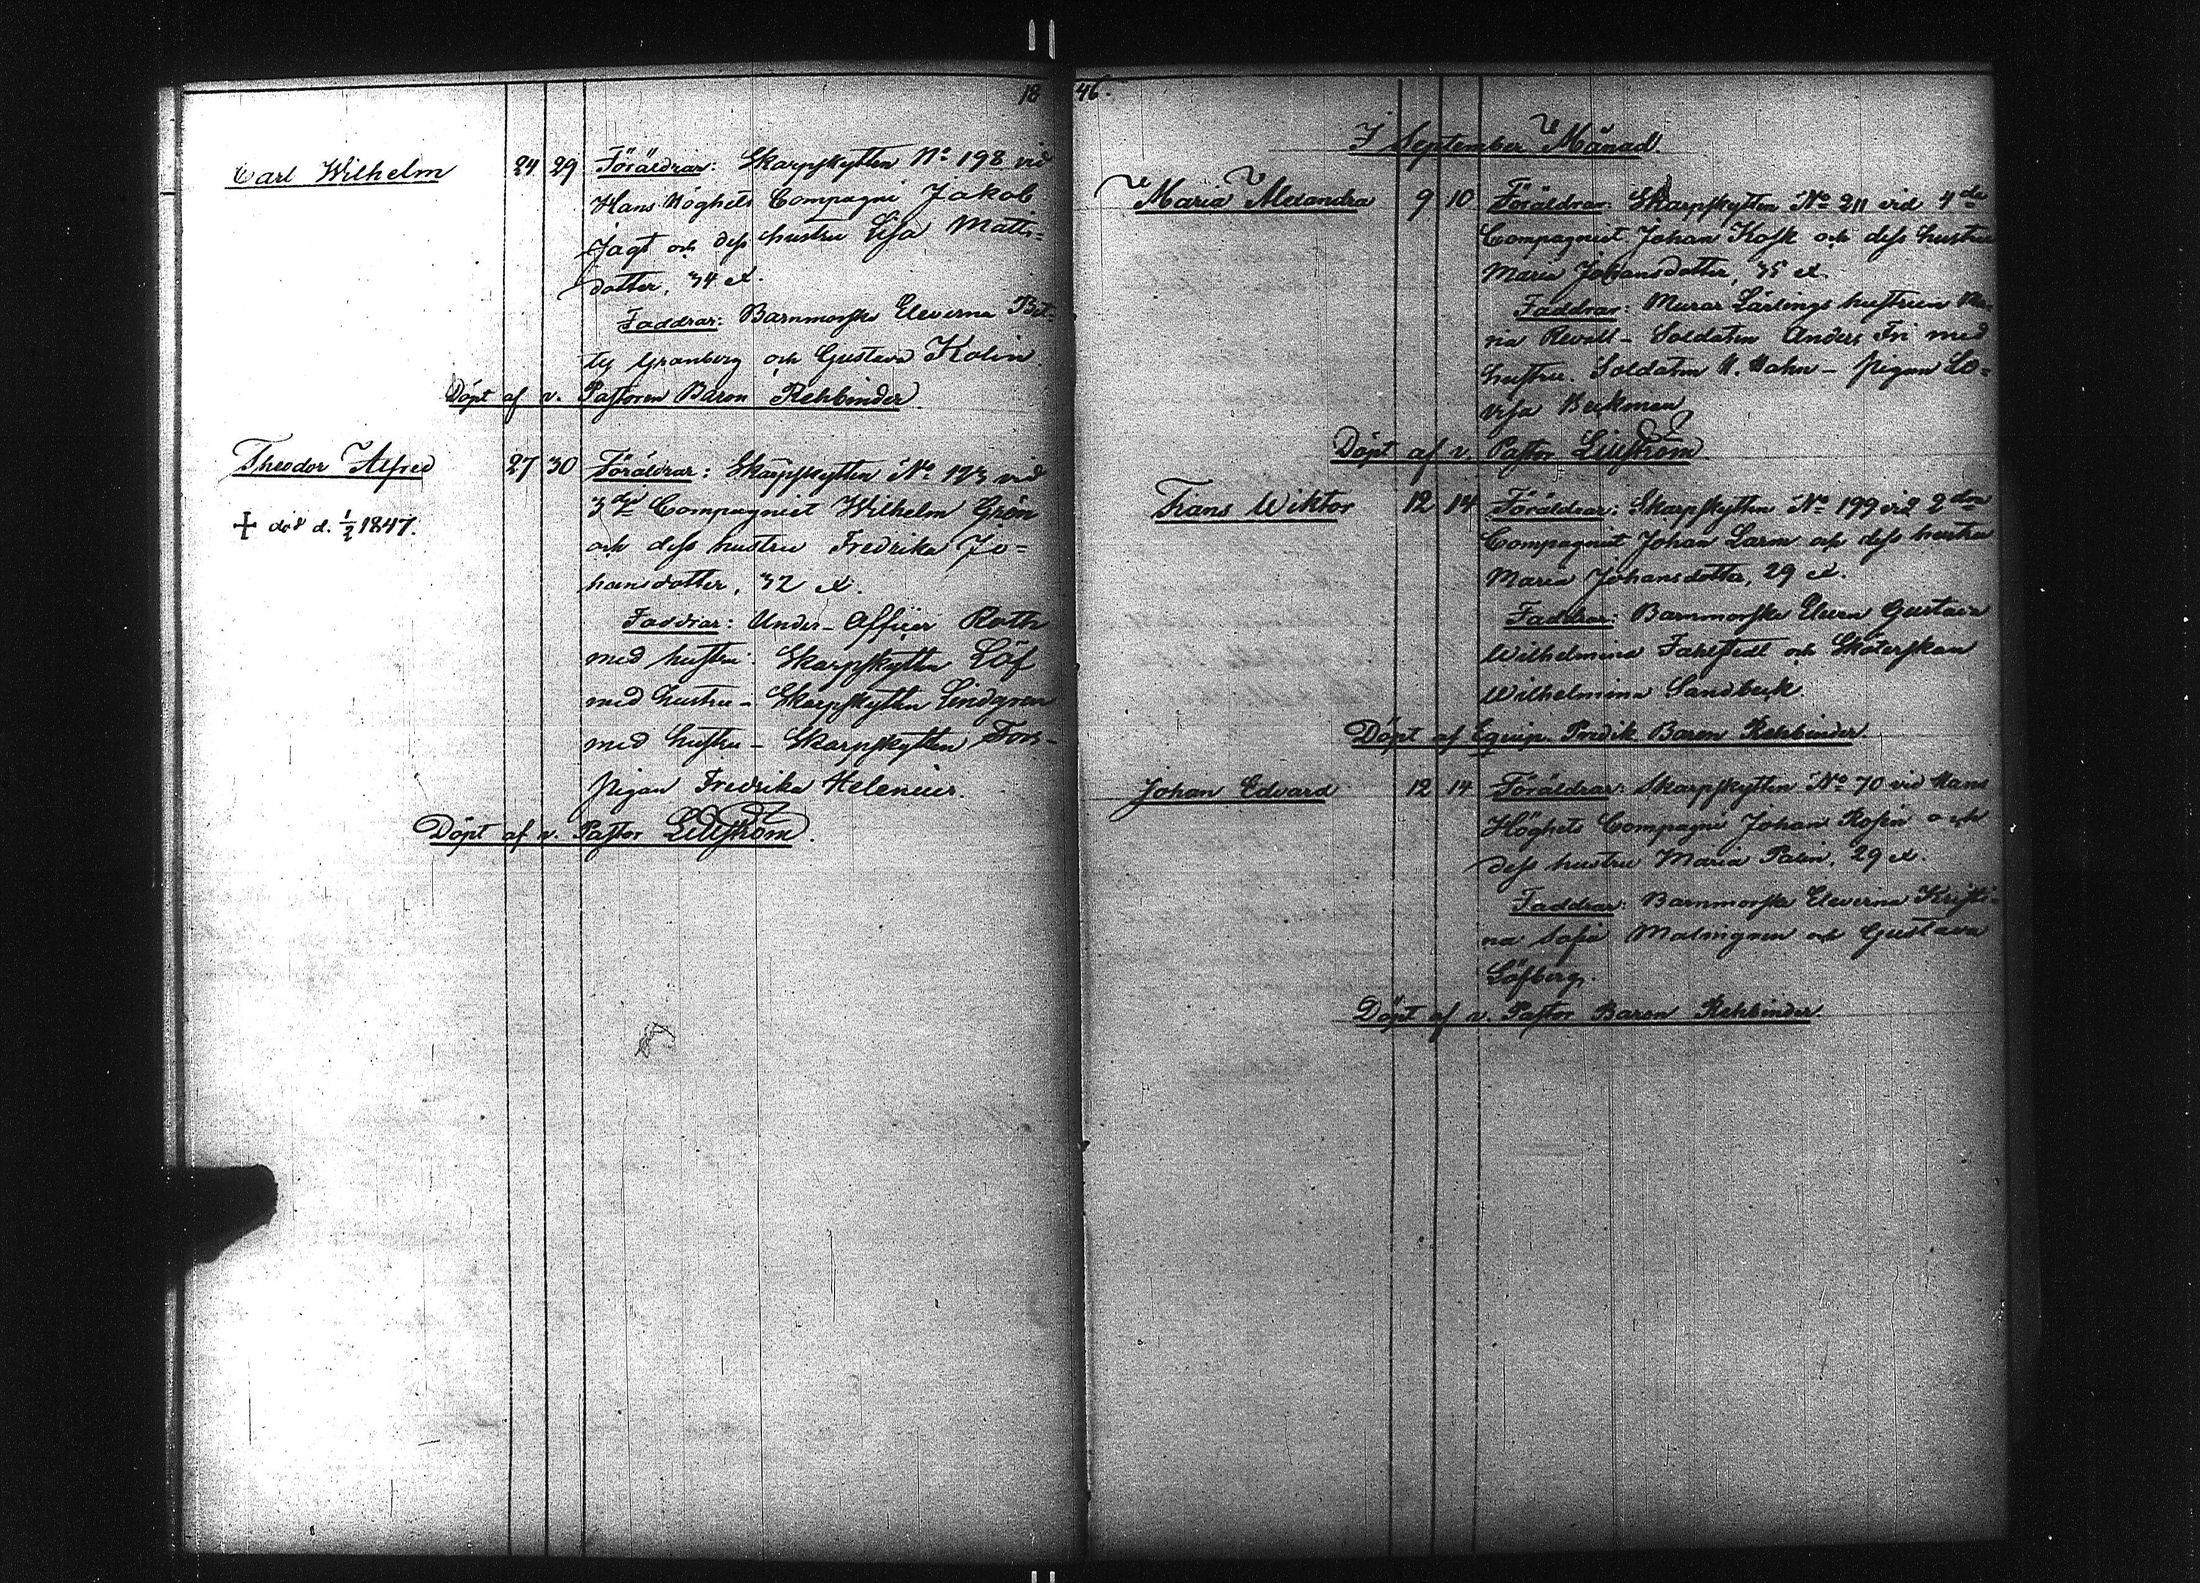 1846.
Carl Wilhelm 24 29 Föräldrar: Skarpskytten No 198 vid
Hans Höghets Compagni Jakob
Jagt och dess hustru Lisa Matts=
dotter, 34 
Faddrar: Barnmorske Eleverna Bet-
ty Granberg och Gustava Kolin
Döpt af v. Pastoren Baron Rehbinder
Theodor Alfred 27 30 Föräldrar: Skarpskytten No 123 vid
† död d. 1/2 1847.
3dje Compagniet Wilhelm Grön
och dess hustru Fredrika Jo=
hansdotter, 32 
Faddrar: Under-Officer Roth
med hustru. Skarpskytten Löf
med hustru - Skarpskytten Lindgren
med hustru - Skarpskytten Fors-
pigan Fredrika Helenius.
Döpt af v. Pastor Liliström.
I September Månad
Maria Alexandra 9 10 Föräldrar: Skarpskytten No 211 vid 4de
Compagniet Johan Kosk och dess hustru
Maria Johansdotter, 35 
Faddrar: Murar Lärlings hustrun Ma-
ria Revall - Soldaten Anders Fri med
hustru. Soldaten H. Hahn - pigan Lo=
visa Beckman
Döpt af v. Pastor Liliström
Frans Wiktor 12 14 Föräldrar: Skarpskytten No 199 vid 2dra
Compagniet Johan Larm och dess hustru
Maria Johansdotter, 29 
Faddrar: Barnmorske Eleven Gustava
Wilhelmina Farstedt och Sköterskan
Wilhelmina Sandbeck
Döpt af Equip. Predik. Baron Rehbinder.
Johan Edvard 12 14 Föräldrar: Skarpskytten No 70 vid Hans
Höghets Compagni Johan Rosin och
dess hustru Maria Palin, 29 
Faddrar: Barnmorske Eleverna Kristi-
na Sofia Malmgren och Gustava
Löfberg.
Döpt af v. Pastor Baron Rehbinder